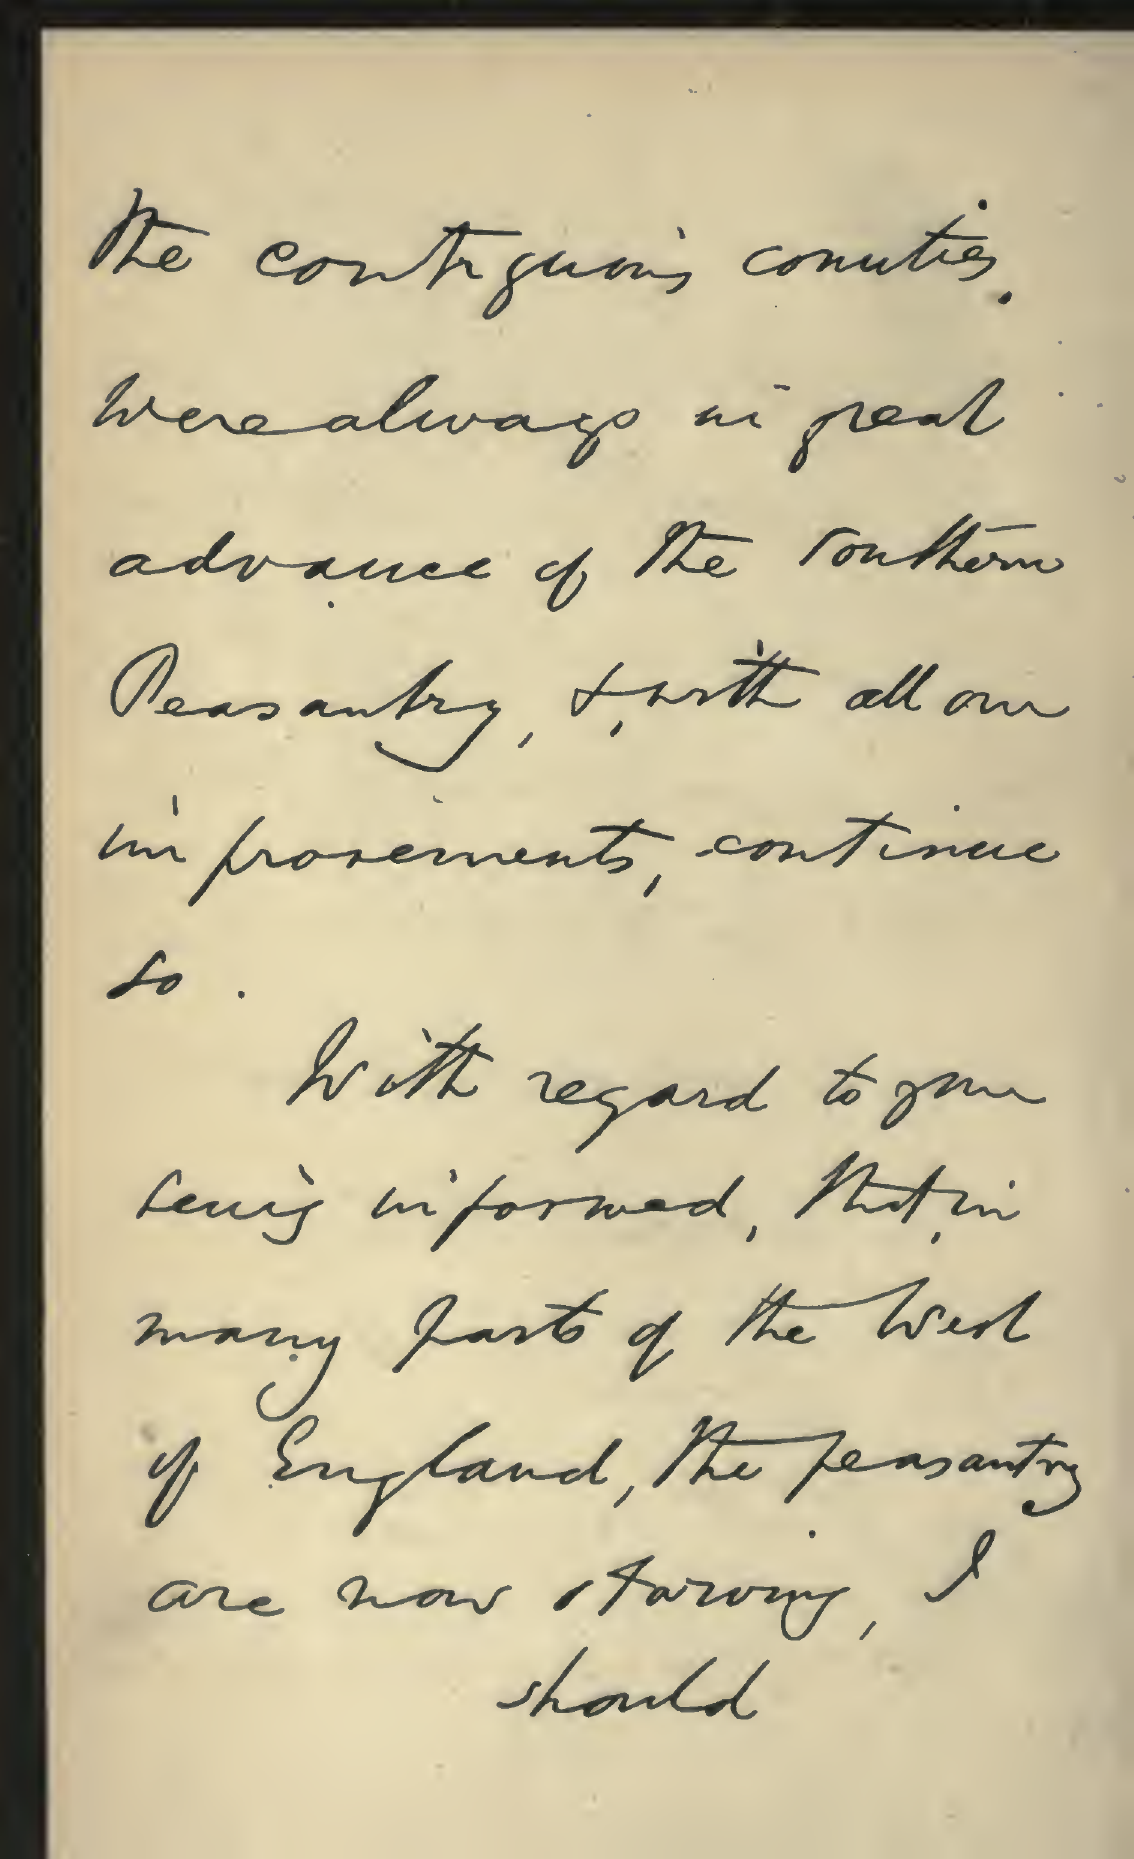 the contiguous counties.
were always in great
advance of the southern
Peasantry, &, with all our
improvements, continue
so.
With regard to your
being informed, that, in
many parts of the West
of England, the peasantry
are now starving, I
should